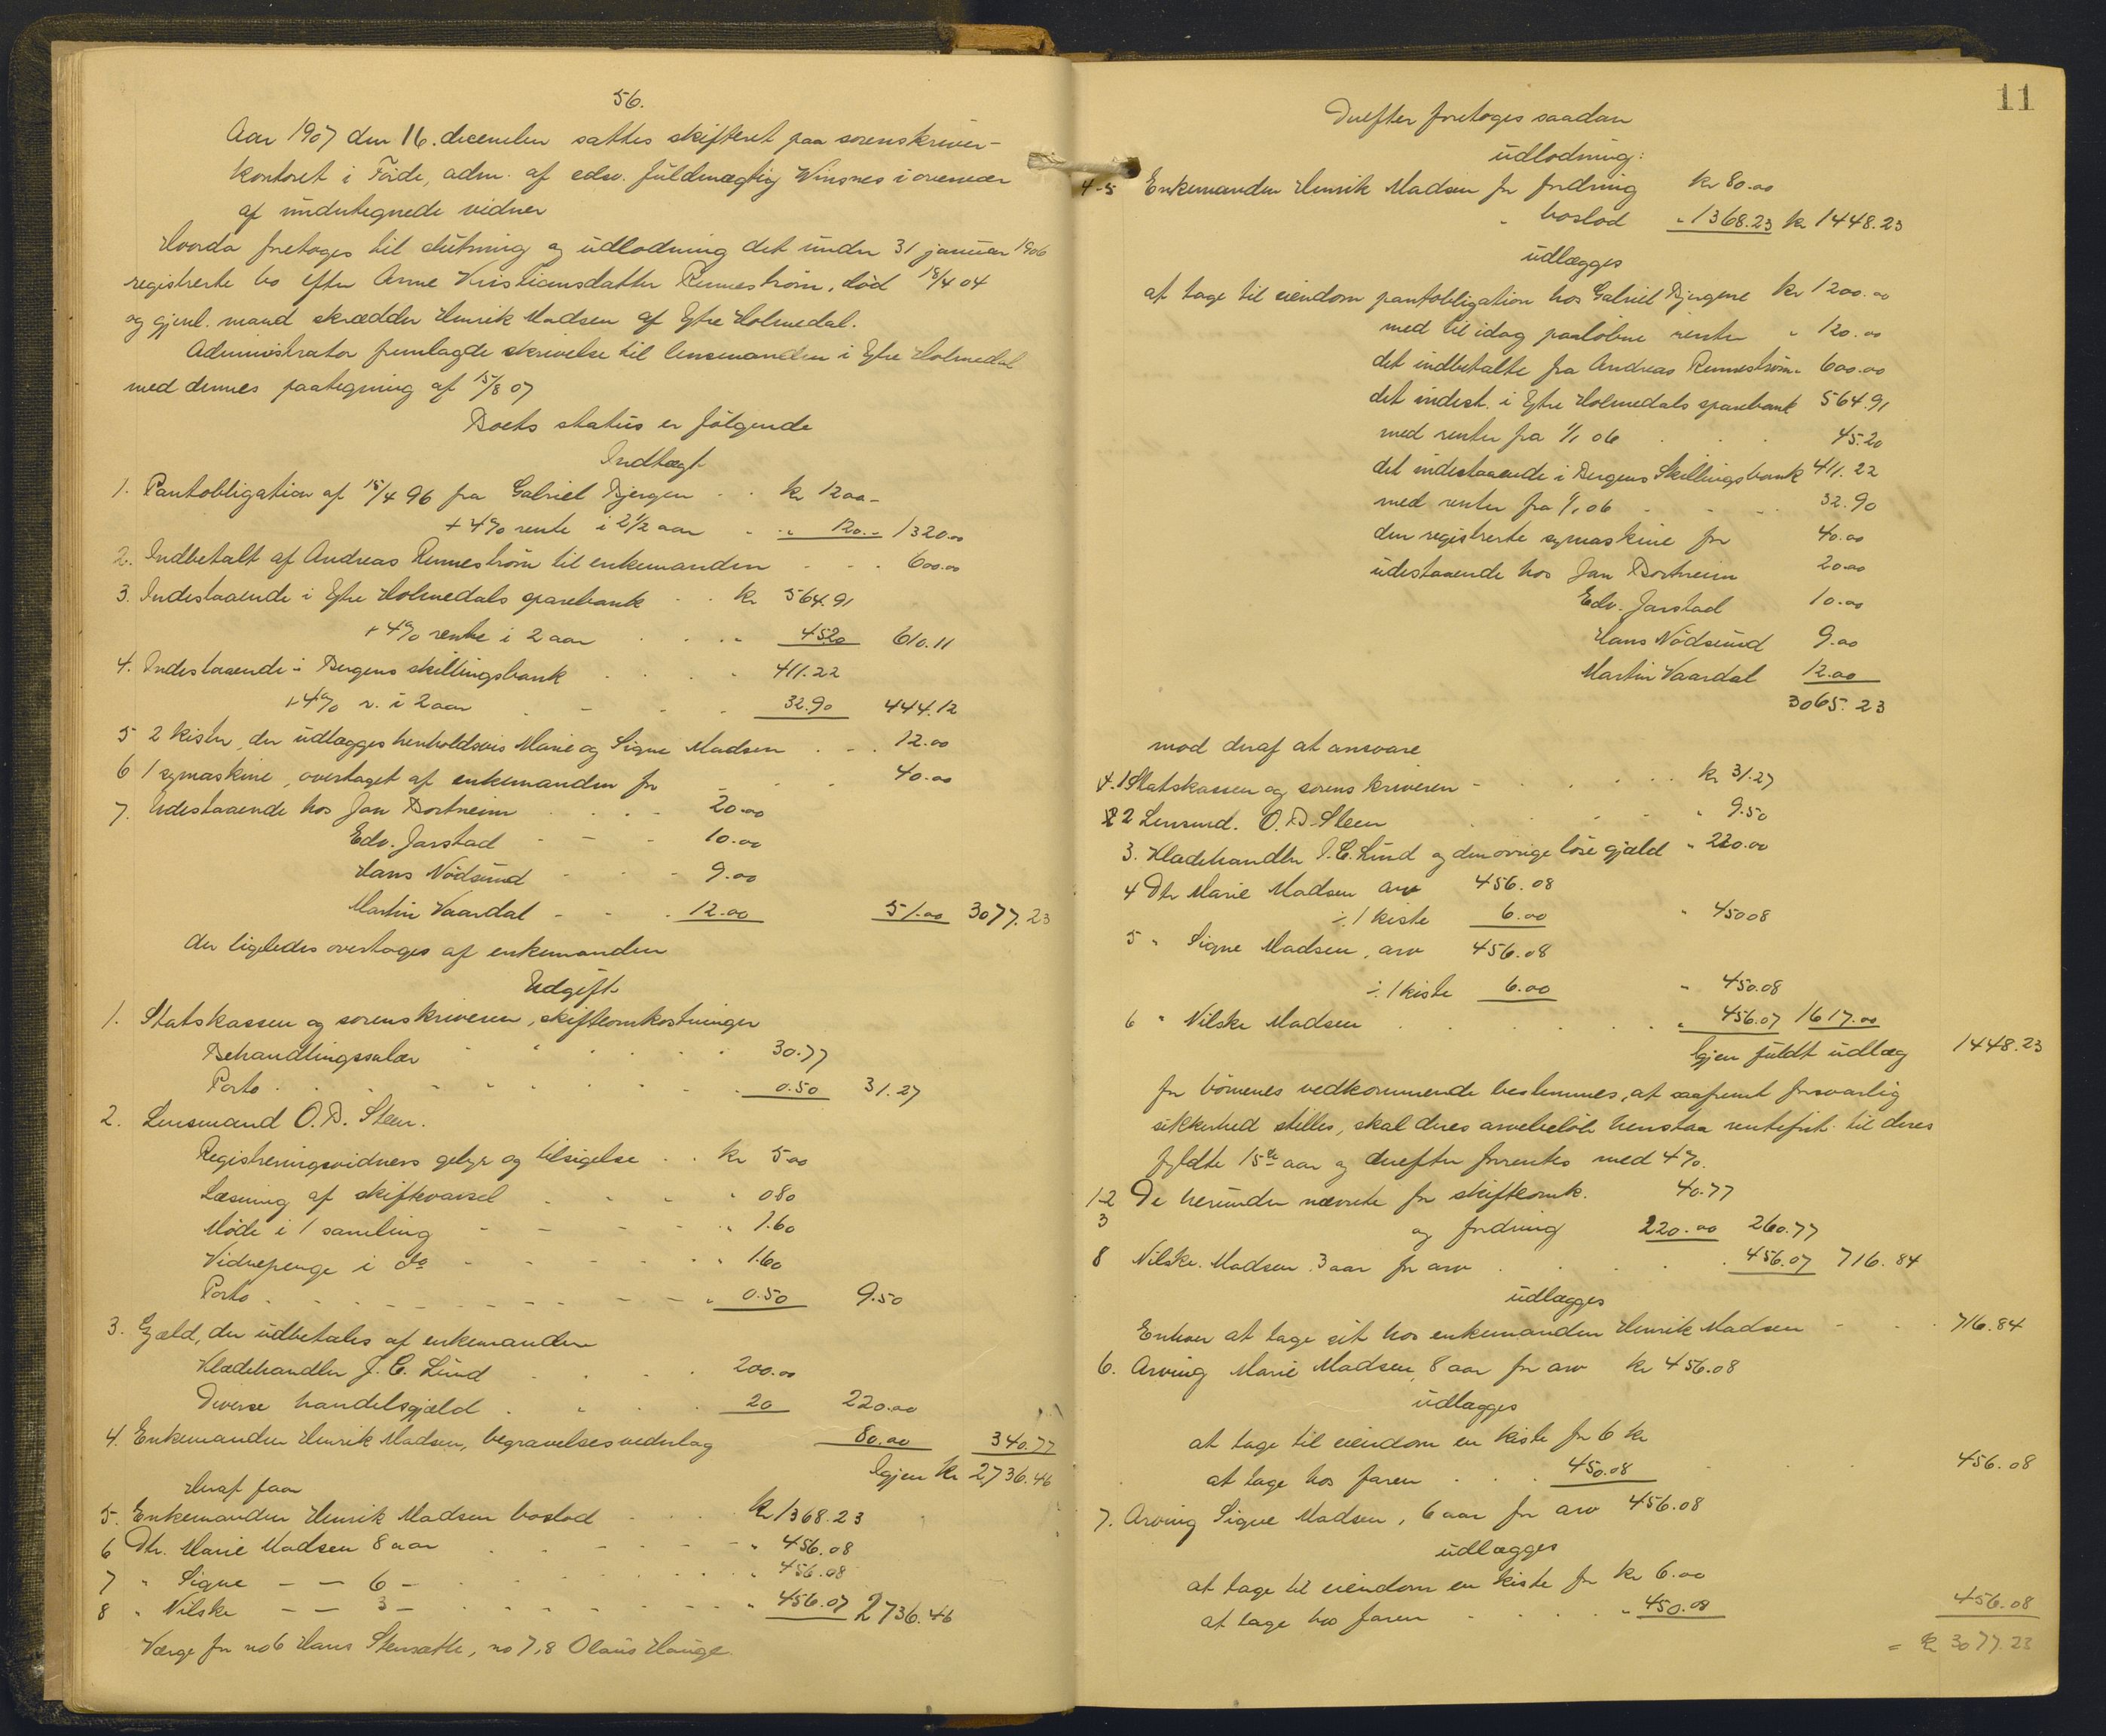 56.
Aar 1907 den 16. december sattes skifteret paa sorenskriver-
kontoret i Förde, adm. af edsv. fuldmægtig Winsnes i overvær
af undertegnede vidner
Hvorda foretoges til slutning og udlodning det under 31 januar 1906
registrerte bo efter Anne Kristiansdatter Rennestrøm, död 18/4 04
og gjenl. mand skrædder Henrik Madsen af Ytre Holmedal.
Administrator fremlagde skrivelse til lensmanden i Ytre Holmedal
med dennes paategning af 15/8 07
Boets status er følgende
Indtægt
1. Pantobligation af 15/4 96 fra Gabriel Bjergen . . kr 1200-
+ 4% rente i 2 1/2 aar . . " 120.- 1320.00
2. Indbetalt af Andreas Rennestrøm til enkemanden . . . 600.00
3. Indestaaende i Ytre Holmedals sparebank . . kr 564.91
+ 4% rente i 2 aar . . . " 45.20 610.11
4. Indestaaende i Bergens skillingsbank . . . . 411.22
+ 4% r. i 2 aar . . . . 32.90 444.12
5 2 kister, der udlægges henholdsvis Marie og Signe Madsen . . . 12.00
6 1 symaskine, overtaget af enkemanden for . . . 40.00
7. Udestaaende hos Jan Bortneim . . . . 20.00
Edv. Jarstad - - - 10.00
Hans Nödsund - - - 9.00
Martin Vaardal - - . 12.00 51.00 3077.23
der ligeledes overtoges af enkemanden
Udgift
1. Statskassen og sorenskriveren, skifteomkostninger
Behandlingssalær . . . . . . 30.77
Porto . . . . . . . . 0.50 31.27
2. Lensmand O. B. Steen.
Registreringsvidners gebyr og tilsigelse . . kr 5.00
Læsning af skiftevarsel . . . . " 0.80
Møde i 1 samling - - - - " 1.60
Vidnepenge i do - - - - " 1.60
Porto . - - - - - - - " 0.50 9.50
3. Gjæld, der udbetales af enkemanden
Klædehandler J. C. Lund . . . . 200.00
Diverse handelsgjæld . . . . 20 220.00
4. Enkemanden Henrik Madsen, begravelsesvederlag 80.00 340.77
Igjen kr 2736.46
Heraf faar
5. Enkemanden Henrik Madsen boslod . . . kr 1368.23
6 Dtr. Marie Madsen 8 aar . . - - - " 456.08
7 " Signe - - 6 - . . . . . . " 456.08
8 " Nilske - - 3 - . . . . . . " 456.07 2736.46
Værge for no 6 Hans Stensætte, no 7,8 Olaus Hauge
11
Derefter foretoges saadan
udlodning:
4-5 Enkemanden Henrik Madsen for fordring kr 80.00
" boslod " 1368.23 kr 1448.23
udlægges
at tage til eiendom pantobligation hos Gabriel Bjergene kr 1200.00
med til idag paaløbne renter " 120.00
det indbetalte fra Andreas Rennestrøm " 600.00
det indest. i Ytre Holmedals sparebank 564.91
med renter fra 1/1 06 . . . 45.20
det indestaaende i Bergens Skillingsbank 411.22
med renter fra 1/1 06 . . . 32.90
den registrerte symaskine for 40.00
udestaaende hos Jan Bortneim 20.00
Edv. Jarstad 10.00
Hans Nödsund 9.00
Martin Vaardal 12.00
3065.23
mod deraf at ansvare
1 Statskassen og sorenskriveren - . . . . . kr 31.27
2 Lensmd. O. B. Steen . . . . " 9.50
3. Klædehandler J. C. Lund og den øvrige løse gjæld " 220.00
4 Dtr Marie Madsen arv 456.08
÷ 1 kiste 6.00 " 450 08
5 " Signe Madsen, arv 456.08
÷ 1 kiste 6.00 " 450.08
6 " Nilske Madsen . . . . . . " 456.07 1617.00
Igjen fuldt udlæg 1448.23
for börnenes vedkommende bestemmes, at saafremt forsvarlig
sikkerhed stilles, skal deres arvebeløb henstaa rentefrit til deres
fyldte 15de aar og derefter forrentes med 4%.
1-2 De herunder nævnte for skifteomk. 40.77
3 og fordring 220.00 260.77
8 Nilske Madsen 3 aar for arv . . . . 456.07 716.84
udlægges
Enhver at tage sit hos enkemanden Henrik Madsen - . . 716.84
6. Arving Marie Madsen, 8 aar for arv kr 456.08
udlægges
at tage til eiendom en kiste for 6 kr
at tage hos faren . . . 450.08 . . . 456.08
7. Arving Signe Madsen, 6 aar for arv 456.08
udlægges
at tage til eiendom en kiste for kr 6.00
at tage hos faren . . . . " 450.08 456.08
= kr 3077.23